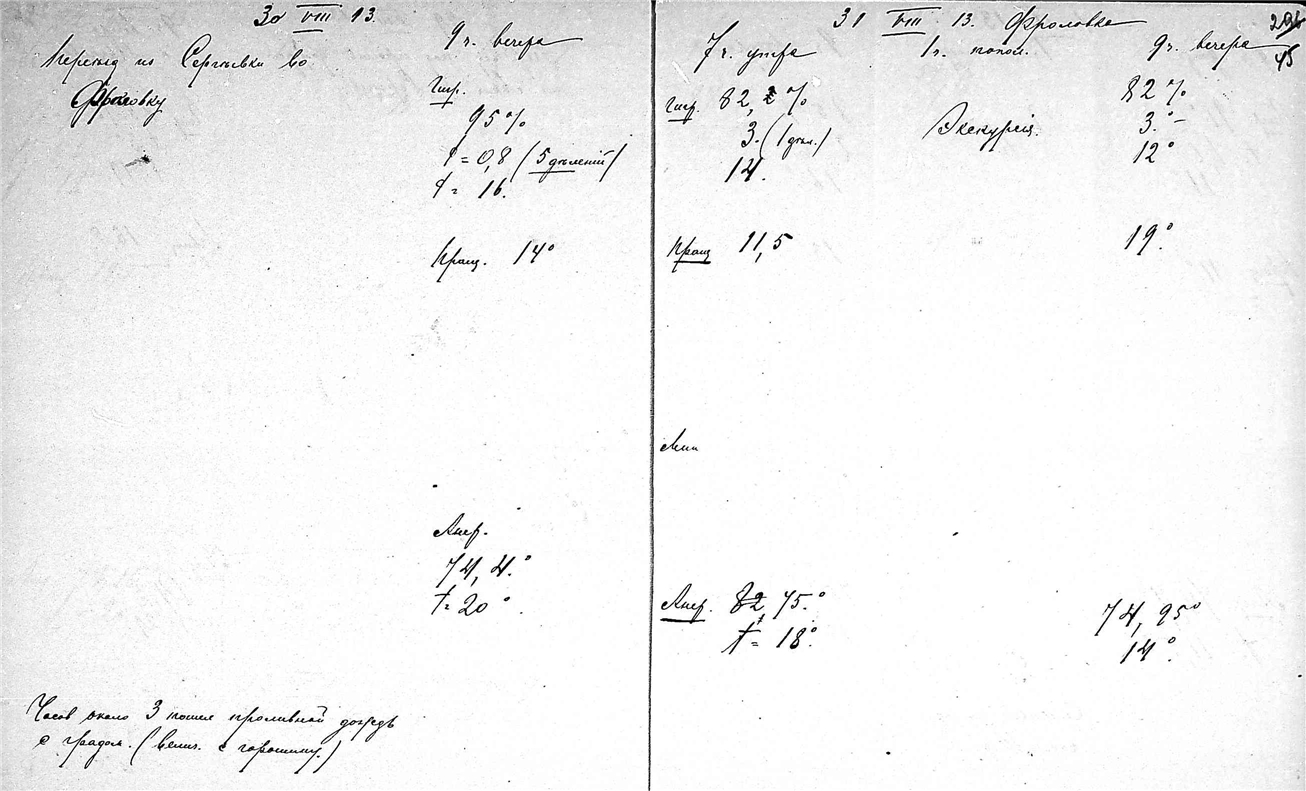 30 VIII 13.
Переезд из Сергѣевки во
Фроловку
9 ч. вечера
Гигр.
95%
f = 0,8 (5 дѣленій)
t = 16.
Пращ. 14°
Анер.
74, 4.°
t = 20°.
Часов около 3 пошел проливной дождь
с градом. (велич. с горошину.)
31 VIII 13. Фроловка
45
7 ч. утра
1 ч. попол.
9 ч. вечера
Гигр. 82, %
3. (1 дѣл.)
14.
Экскурсія.
82%
3.°-
12°
Пращ 11,5
19°.
Мин
Анер. 82, 75.°
t = 18°.
74, 95°
14°.